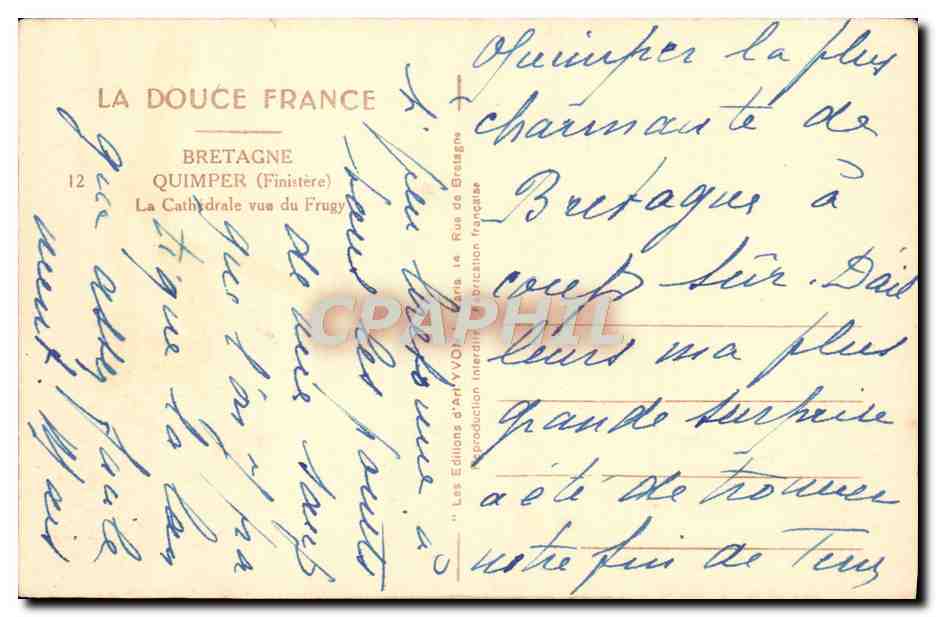 LA DOUCE FRANCE
BRETAGNE
12 QUIMPER (Finistère)
La Cathédrale vue du Frugy
"Les Editions d'Art YVON" Paris, 14 Rue de Bretagne
Reproduction interdite Fabrication française
CPAPHIL
Quimper la plus
charmante de
Bretagne à
coup sûr. Dail
leurs ma plus
grande surprise
a été de trouver
notre fin de
si peu bretonne à
tous les points
de vue sauf
que l'on y
que la
que assez facile
ment. Mais